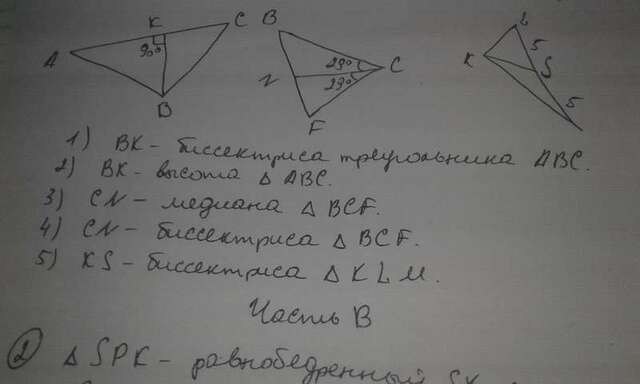 K C B L
90° 29° 5
A N C K S
29° 5
B F
1) BK - биссектриса треугольника ABC.
2) BK - высота △ ABC.
3) CN - медиана △ BCF.
4) CN - биссектриса △ BCF.
5) KS - биссектриса △ KLM.
Часть В
2 △ SPK - равнобедренный